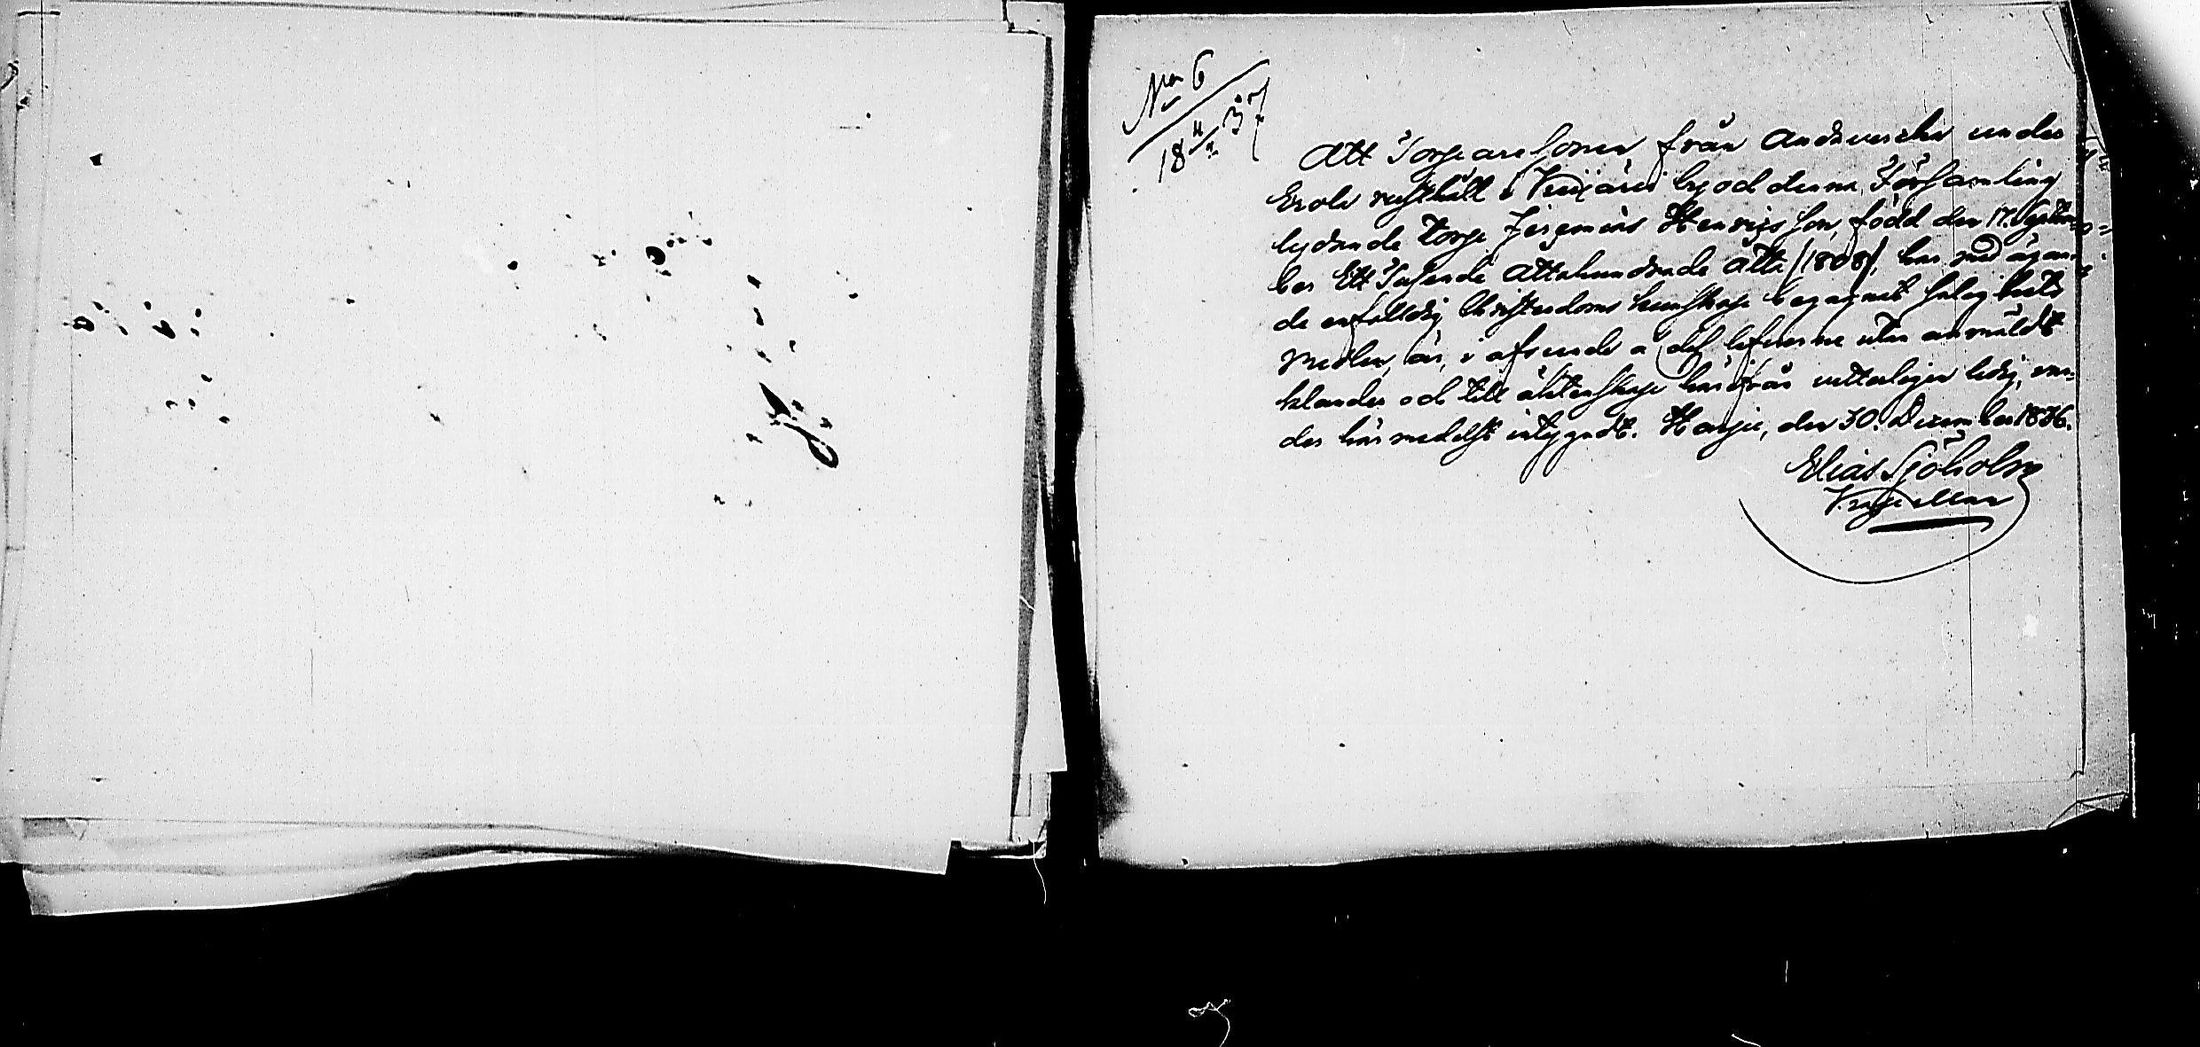 No 6
18 4/2 37
Att Torparesonen från Andersches under
Erola rusthåll i by och denna Församling
lydande torp Jeremias Henricsson, född den 17. Septem=
ber Ett Tusende Attahundrade åtta (1808), har med ägan=
de enfaldig Christendoms kunskap begagnat salighets
medlen, är, i afseende å dess lefverne utan anmäldt
klander och till äktenskap härifrån vetterligen ledig, var=
der härmedelst intygadt. Honjo, den 30. December 1836.
Elias Sjöholm
Kapellan